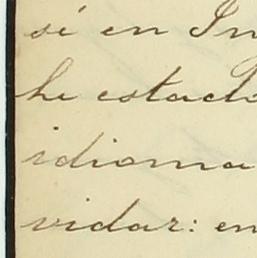 sé en In
he estado
idioma
vidar: en